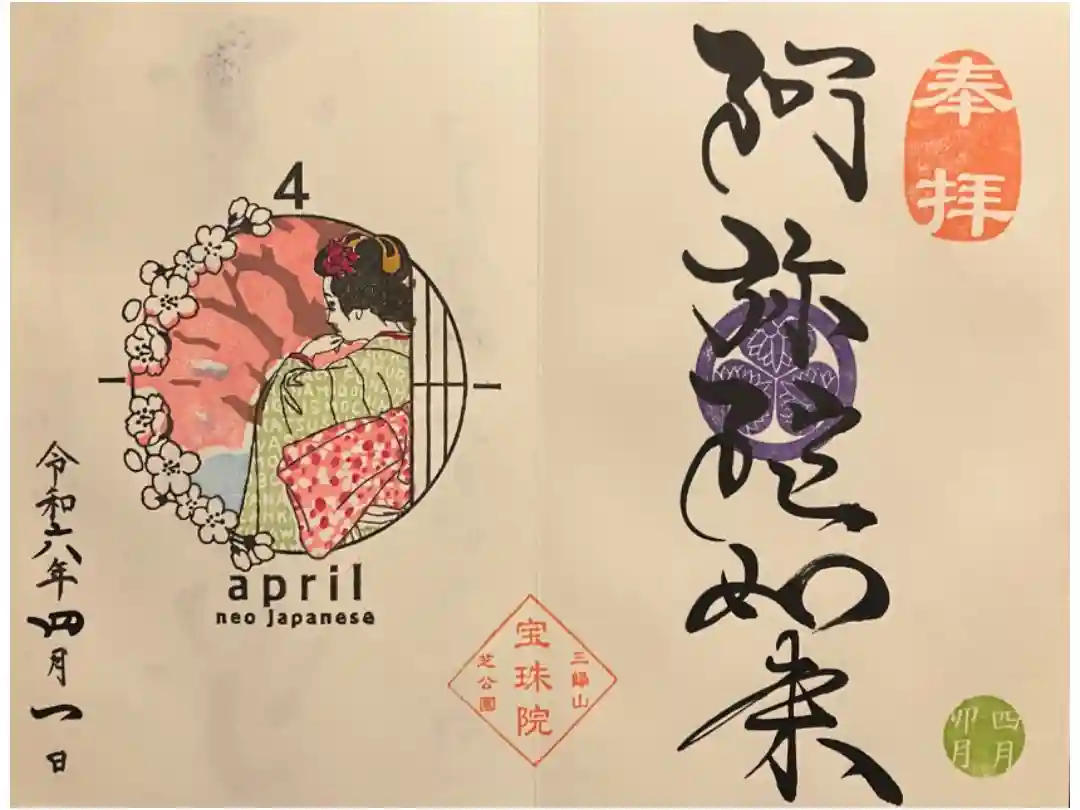 奉拝
阿弥陀如来
四月
卯月
三歸山
宝珠院
芝公園
4
april
neo Japanese
令和六年四月一日